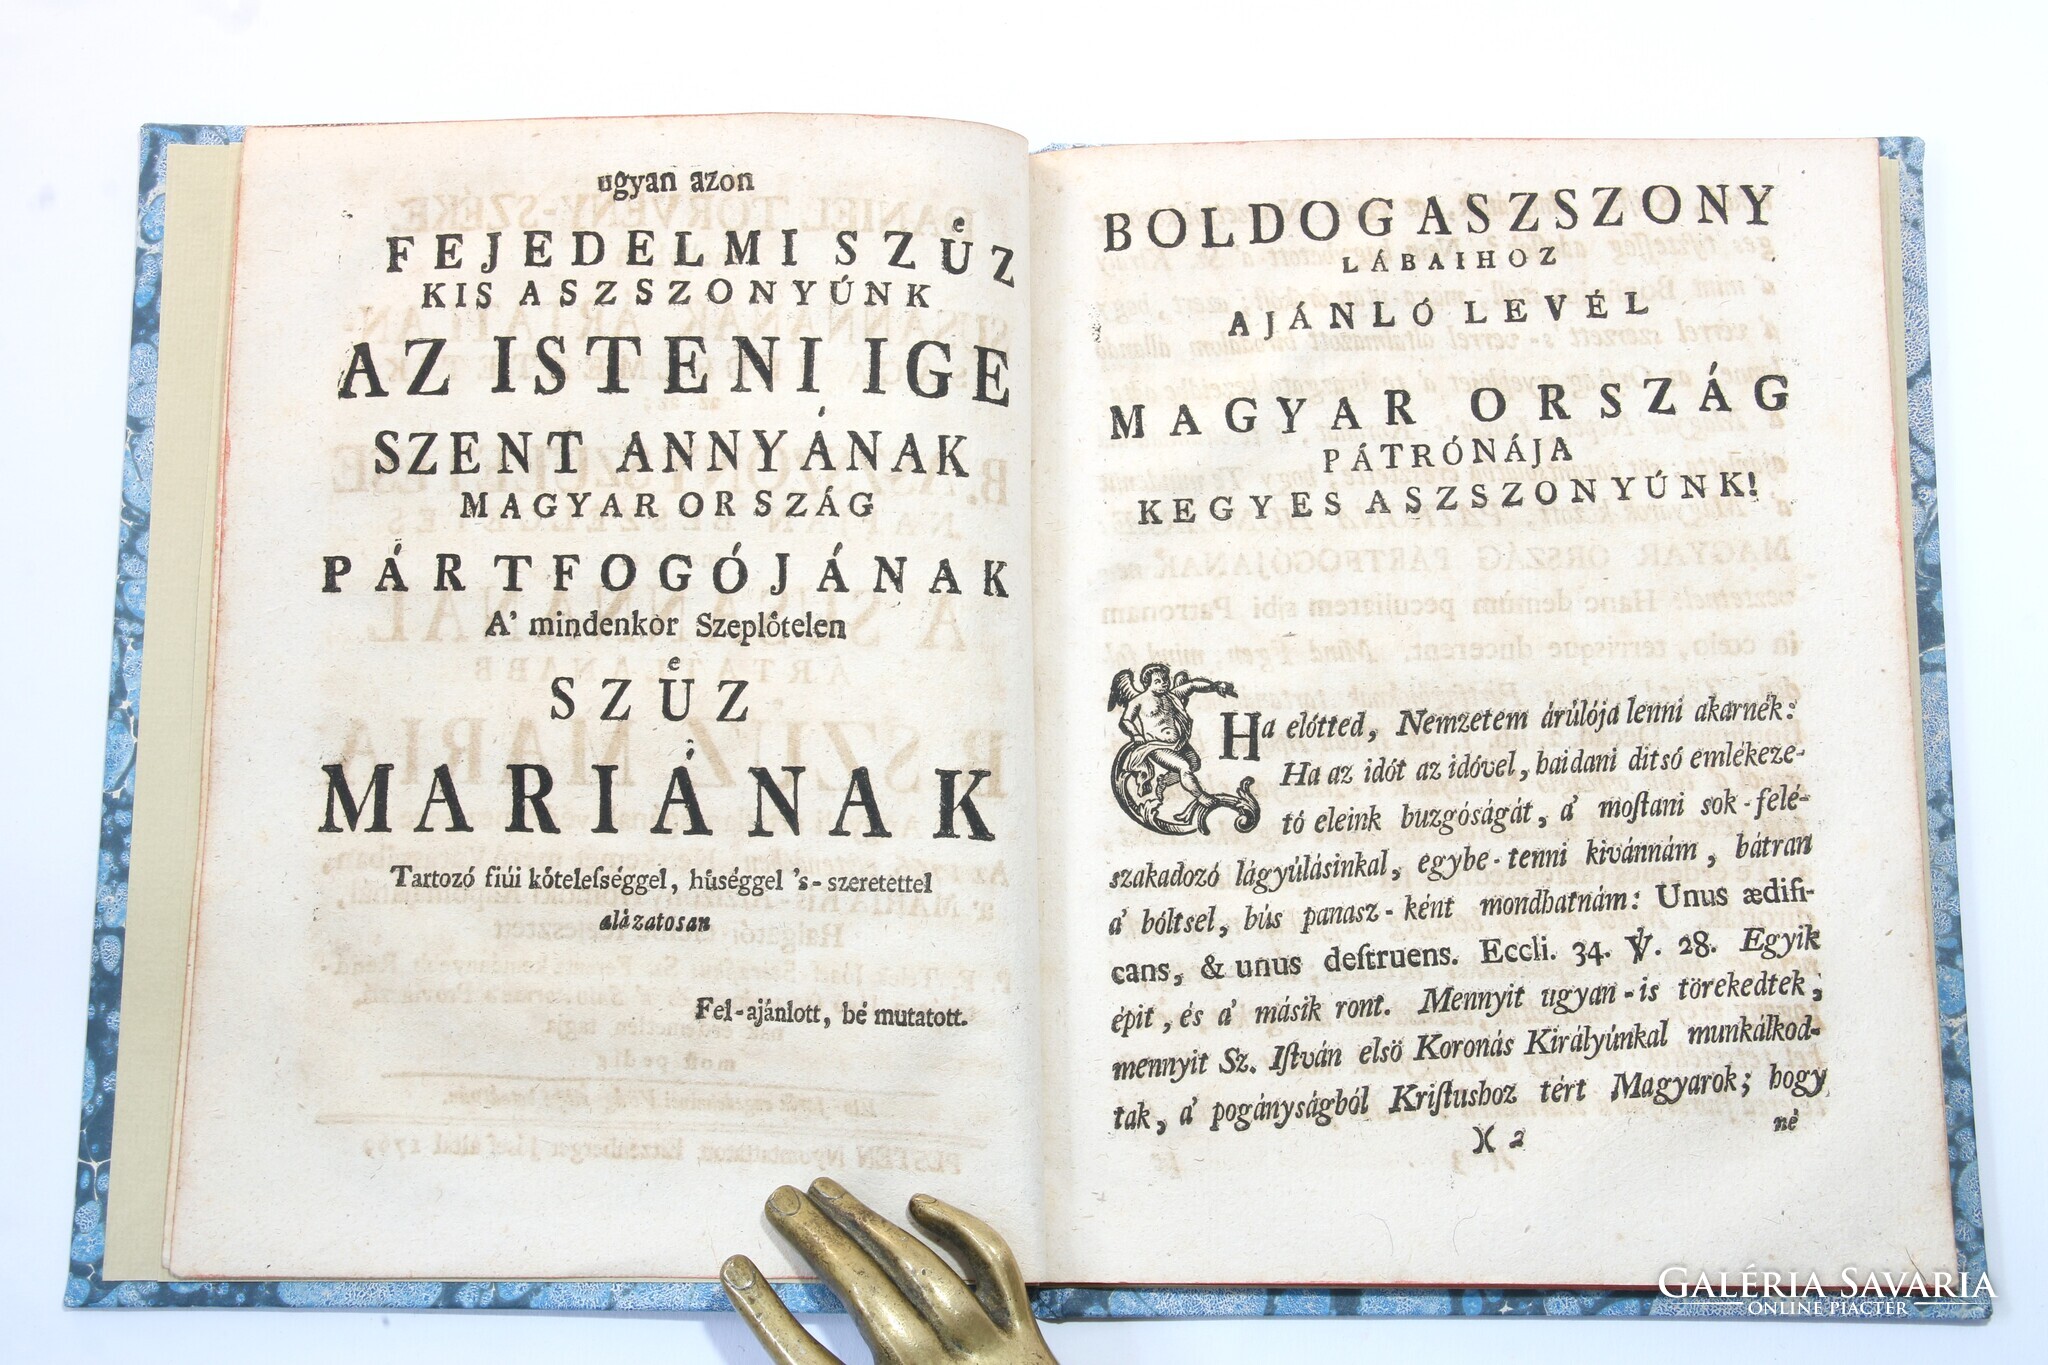 ugyan azon
FEJEDELMI SZŰZ
KIS ASZSZONYÚNK
AZ ISTENI IGE
SZENT ANNYÁNAK
MAGYAR ORSZÁG
PÁRTFOGÓJÁNAK
A' mindenkor Szeplőtelen
SZŰZ
MARIÁNAK
Tartozó fiúi kőteleſséggel, hűséggel 's-szeretettel
alázatosan
Fel-ajánlott, bé mutatott.
BOLDOGASZSZONY
LÁBAIHOZ
AJÁNLÓ LEVÉL
MAGYAR ORSZÁG
PÁTRÓNÁJA
KEGYES ASZSZONYÚNK!
Ha előtted, Nemzetem árúlója lenni akarnék:
Ha az időt az idővel, haidani ditső emlékeze-
tő eleink buzgóságát, a' moſtani sok-felé-
szakadozó lágyúlásinkal, egybe-tenni kivánnám, bátran
a' bőltsel, bús panasz-ként mondhatnám: Unus ædifi-
cans, & unus deſtruens. Eccli. 34. ℣. 28. Egyik
épit, és a' másik ront. Mennyit ugyan-is törekedtek,
mennyit Sz. Iſtván első Koronás Királyúnkal munkálkod-
tak, a' pogányságból Kriſtushoz tért Magyarok; hogy
)( 2
né
GALÉRIA SAVARIA
ONLINE PIACTÉR